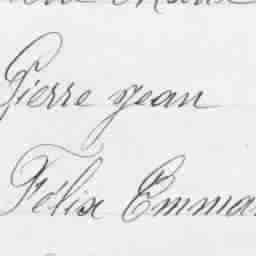 Pierre Jean
Félix Emma